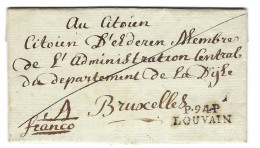 Au Citoien
Citoien D'elderen Membre
de L'Administration Central
du departement de la Dijle
A
Bruxelles
franco
P.94.P
LOUVAIN